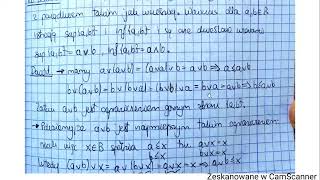 z porządkiem takim jak wcześniej. Wówczas dla a,b∈B
istnieją sup{a,b} i inf{a,b} i są one dwoistego
sup{a,b} = a∨b , inf{a,b} = a∧b.
Dowód → mamy a∨(a∨b) = (a∨a)∨b = a∨b ⇒ a≤a∨b
b∨(a∨b) = b∨(b∨a) = (b∨b)∨a = b∨a = a∨b ⇒ b≤a∨b
Zatem a∨b jest ograniczeniem górnym zbioru {a,b}.
→ Pokażemy, że a∨b jest najmniejszym takim ograniczeniem
x∈B spełnia a≤x tzn. a∨x = x
b≤x b∨x = x
Wtedy (a∨b)∨x = a∨(b∨x) = a∨x = x ⇒ a∨b≤x
Zeskanowane w CamScanner